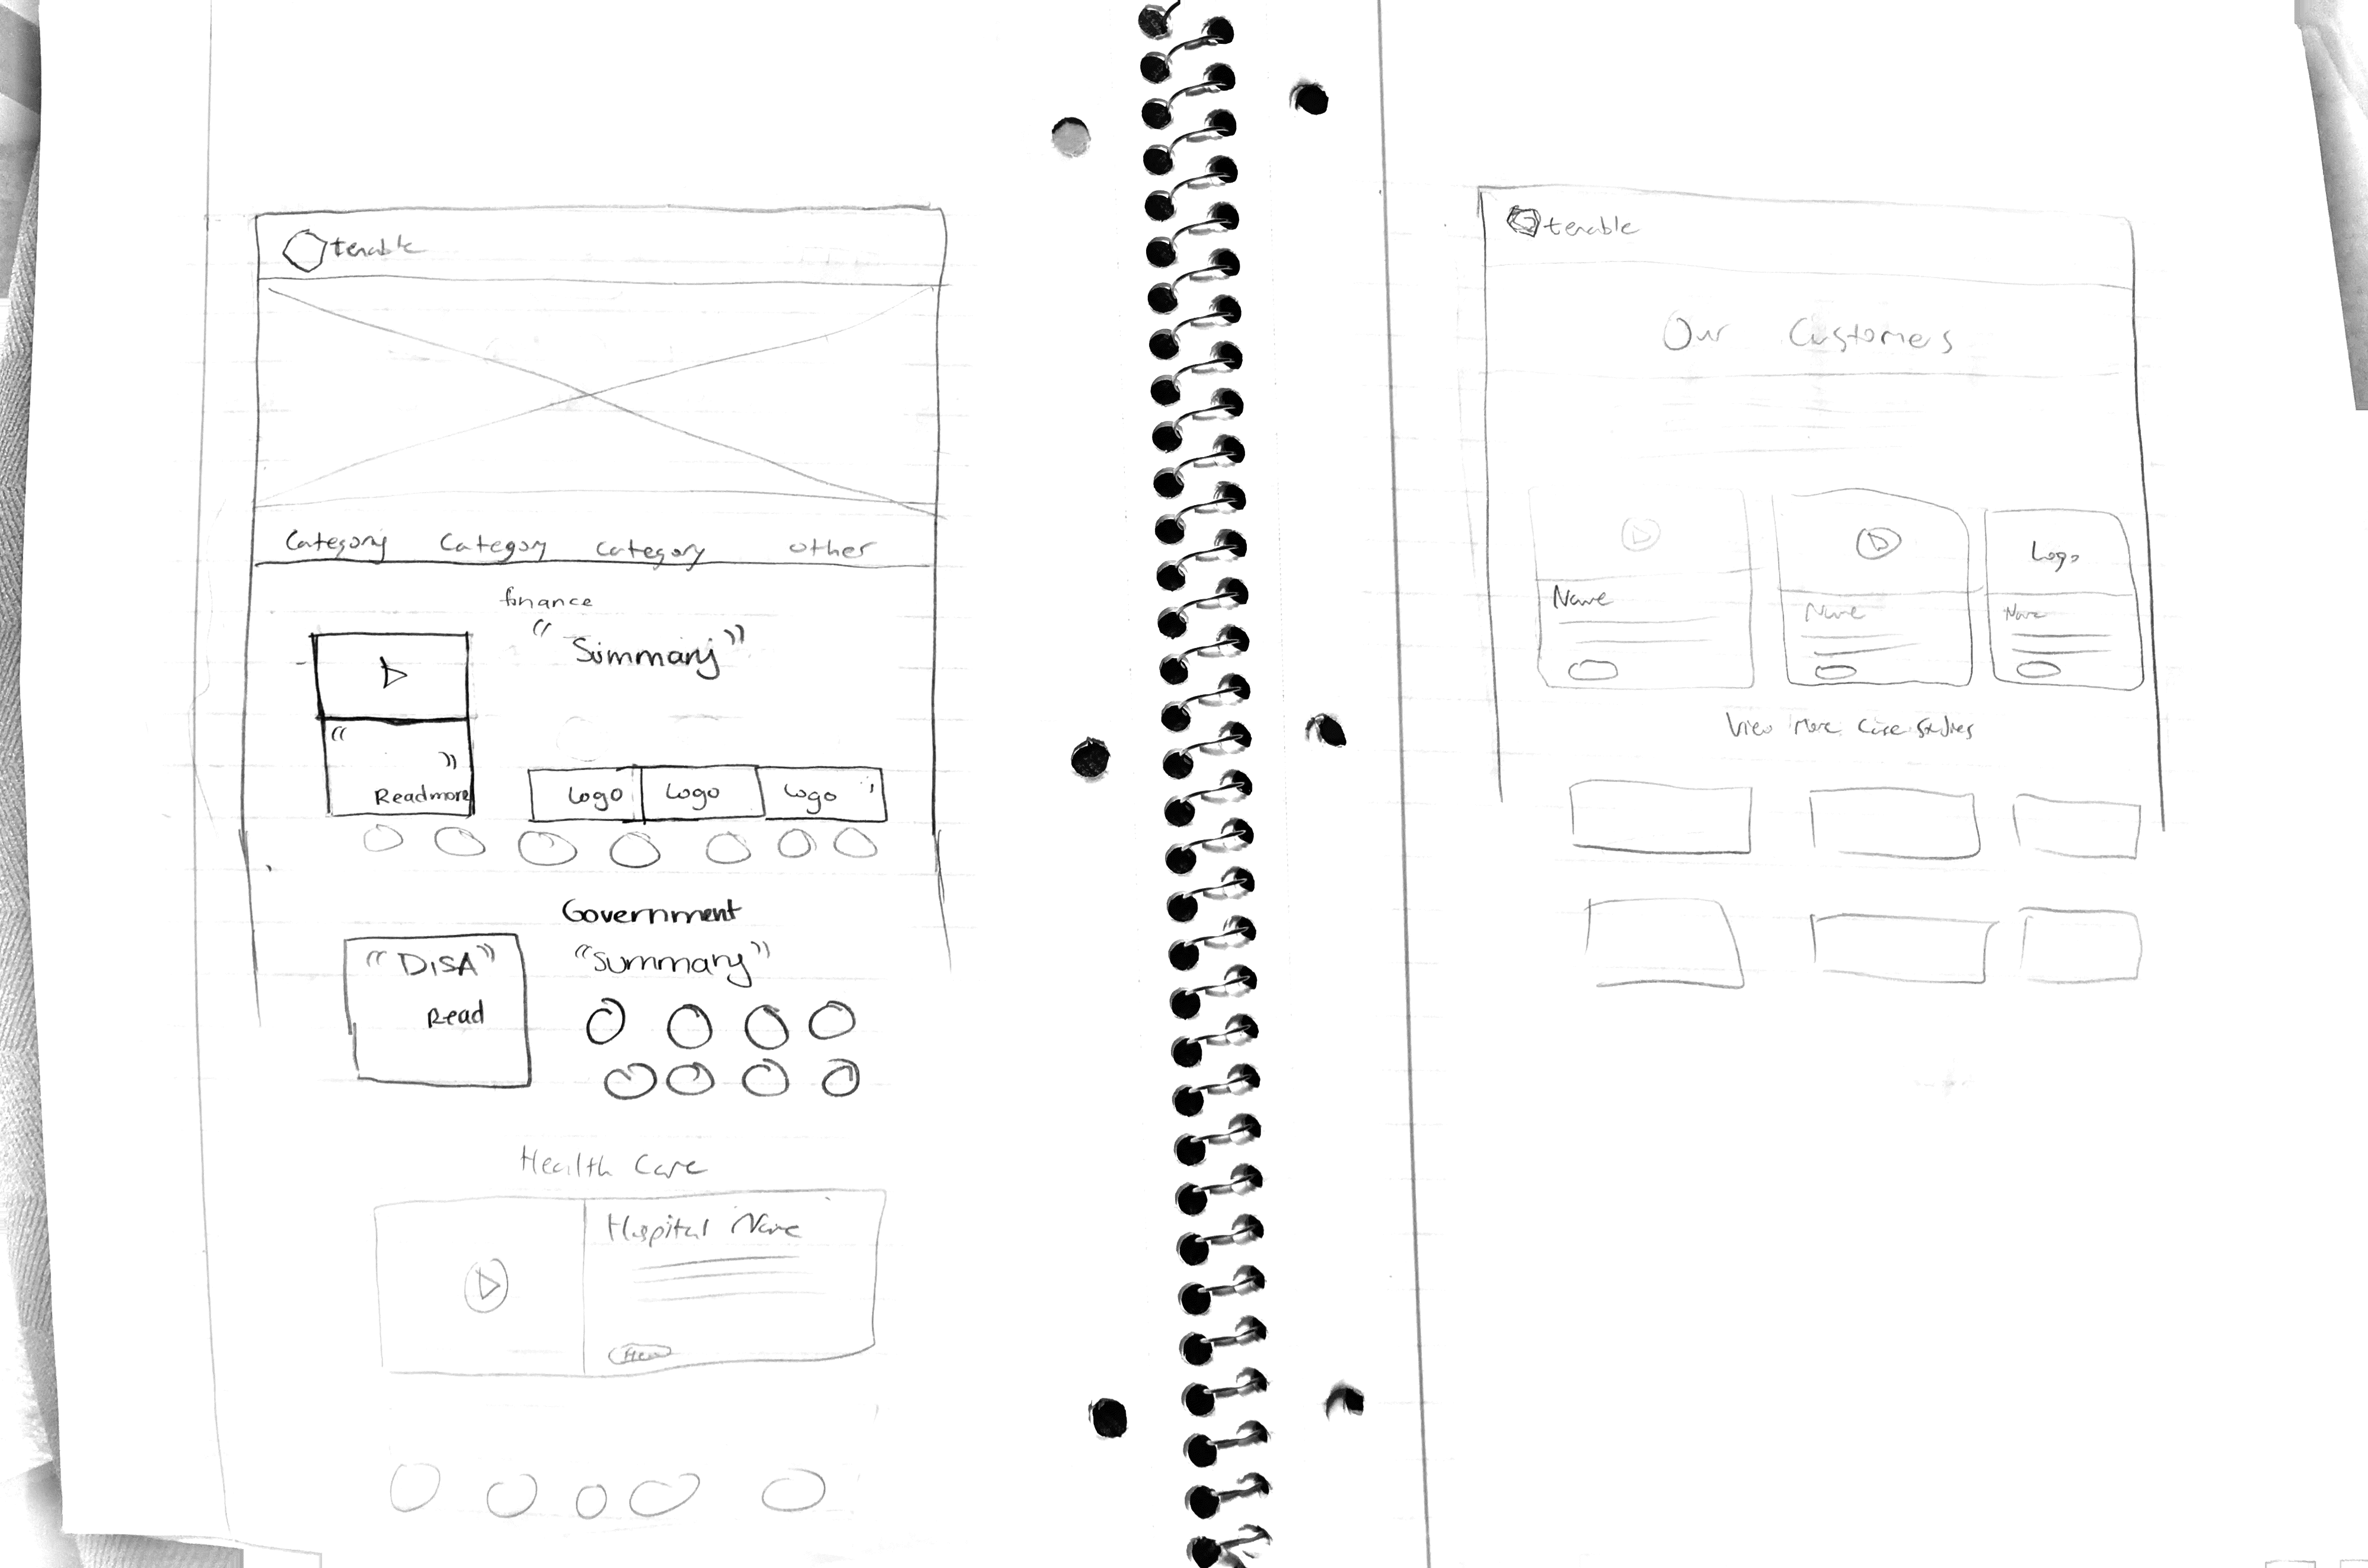 tenable
Category Category Category other
finance
" Summary "
"
"
Readmore
Logo Logo Logo
Government
"DISA" "Summary"
Read
Health Care
Hospital Name
tenable
Our Customers
Logo
Name Name Name
View More Case Studies